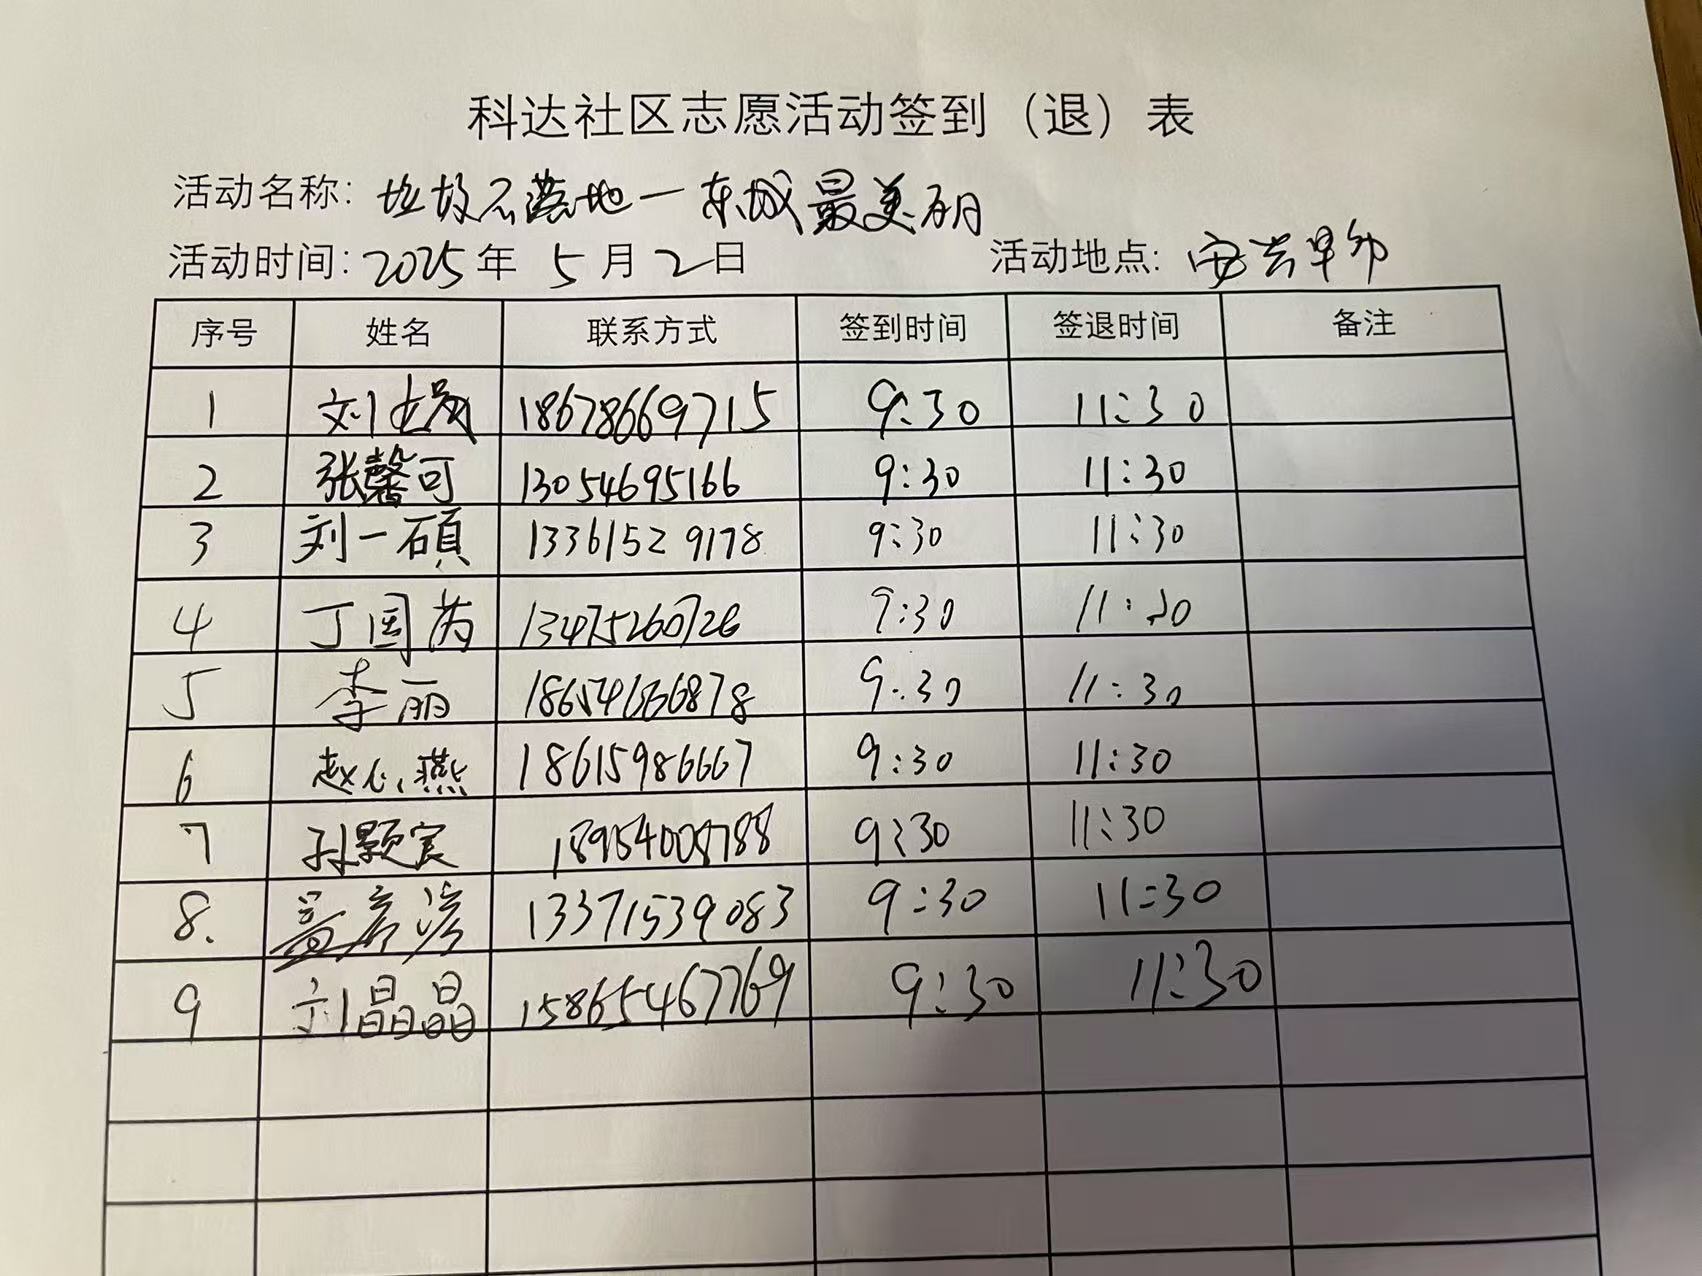 科达社区志愿活动签到（退）表
活动名称: 垃圾不落地一东城最美丽
活动时间: 2025年 5月2日 活动地点:
序号 姓名 联系方式 签到时间 签退时间 备注
1 刘 18678669715 9:30 11:30
2 张馨可 13054695166 9:30 11:30
3 刘一碩 13361529178 9:30 11:30
4 丁国芮 13475260726 9:30 11:30
5 李丽 9:30 11:30
6 赵心燕 18615986667 9:30 11:30
7 孙颢宸 18954008788 9:30 11:30
8. 彦 13371539083 9:30 11:30
9 刘晶晶 15865467769 9:30 11:30